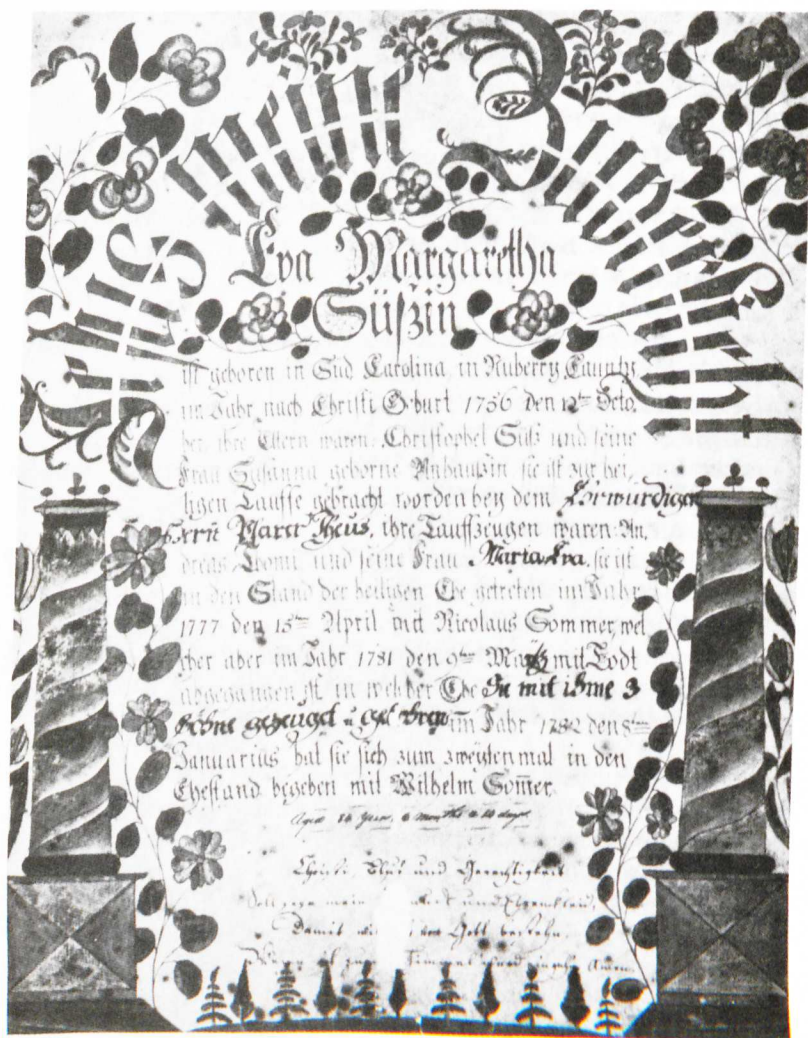 Eva Margaretha
Süßin
ist geboren in Süd Carolina, in Nuberry Caunty
im Jahr nach Christi Geburt 1756 den 12ten Octo,
ber, ihre Eltern waren, Christophel Süß und seine
Frau Susanna geborne sie ist zur hei,
ligen Tauffe gebracht worden bey dem Ehrwürdigen
Herrn ihre Tauffzeugen waren An,
dreas und seine Frau Maria Eva, sie ist
in den Stand der heiligen Ehe getreten im Jahr
1777 den 15ten April mit Nicolaus Sommer, wel
cher aber im Jahr 1781 den 9ten Martz mit Todt
abgegangen ist in welcher Ehe Sie mit ihme 3
Söhne gezeuget u im Jahr 1782 den 8ten
Januarius hat sie sich zum zweytenmal in den
Ehestand begeben mit Wilhelm Som̅er
Aged Years, 6 months & days
Christi Blut und Gerechtigkeit
mein und Ehrenkleid,
Damit Gott bestehn